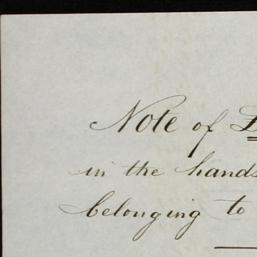 Note of
in the hands
belonging to